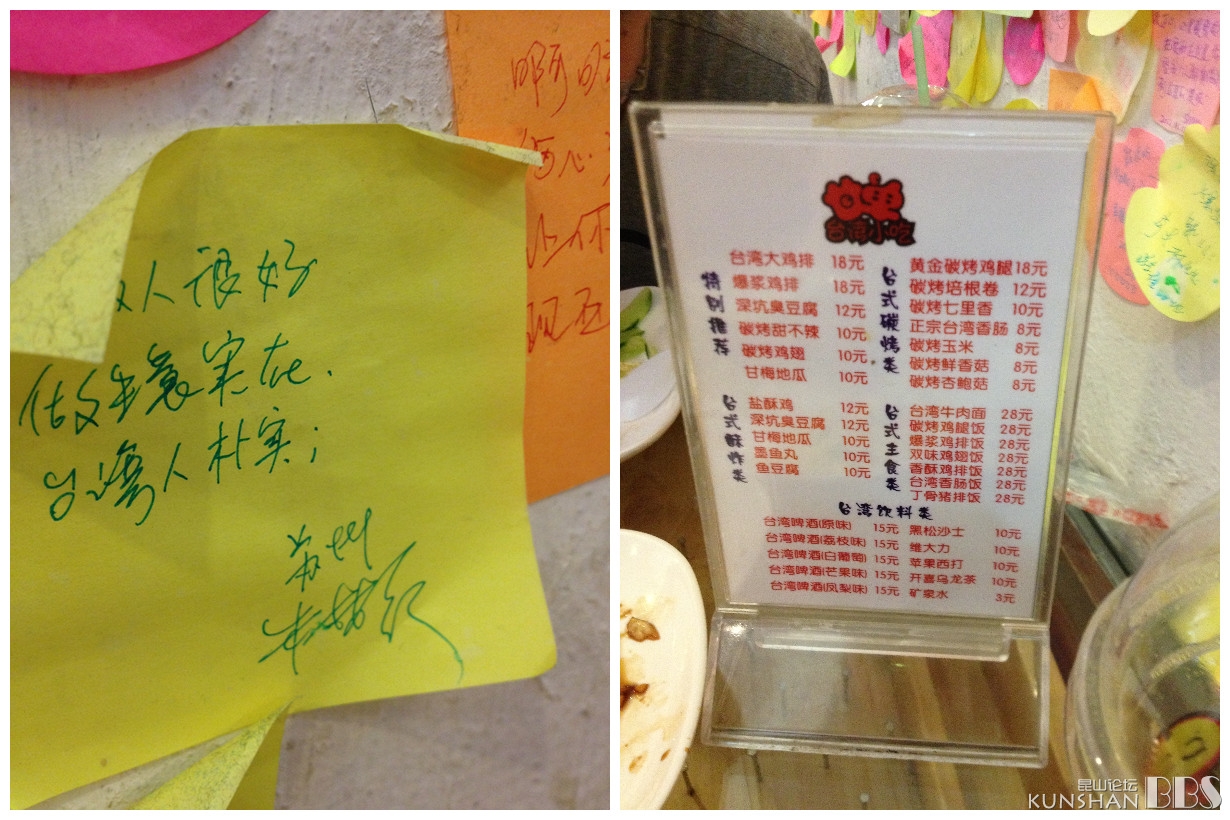 人很好
做生意实在.
台湾人朴实;
苏州
啊
台湾小吃
特别推荐
台湾大鸡排 18元
爆浆鸡排 18元
深坑臭豆腐 12元
碳烤甜不辣 10元
碳烤鸡翅 10元
甘梅地瓜 10元
台式碳烤类
黄金碳烤鸡腿 18元
碳烤培根卷 12元
碳烤七里香 10元
正宗台湾香肠 8元
碳烤玉米 8元
碳烤鲜香菇 8元
碳烤杏鲍菇 8元
台式酥炸类
盐酥鸡 12元
深坑臭豆腐 12元
甘梅地瓜 10元
墨鱼丸 10元
鱼豆腐 10元
台式主食类
台湾牛肉面 28元
碳烤鸡腿饭 28元
爆浆鸡排饭 28元
双味鸡翅饭 28元
香酥鸡排饭 28元
台湾香肠饭 28元
丁骨猪排饭 28元
台湾饮料类
台湾啤酒(原味) 15元 黑松沙士 10元
台湾啤酒(荔枝味) 15元 维大力 10元
台湾啤酒(白葡萄) 15元 苹果西打 10元
台湾啤酒(芒果味) 15元 开喜乌龙茶 10元
台湾啤酒(凤梨味) 15元 矿泉水 3元
昆山论坛
KUNSHAN BBS